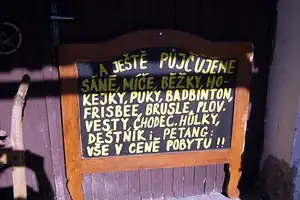 A JEŠTĚ PŮJČUJEME
SÁNĚ, MÍČE, BĚŽKY, HO-
KEJKY, PUKY, BADBINTON,
FRISBEE, BRUSLE, PLOV.
VESTY, CHODEC. HŮLKY,
DEŠTNÍK i PETANG:
VŠE V CENĚ POBYTU !!